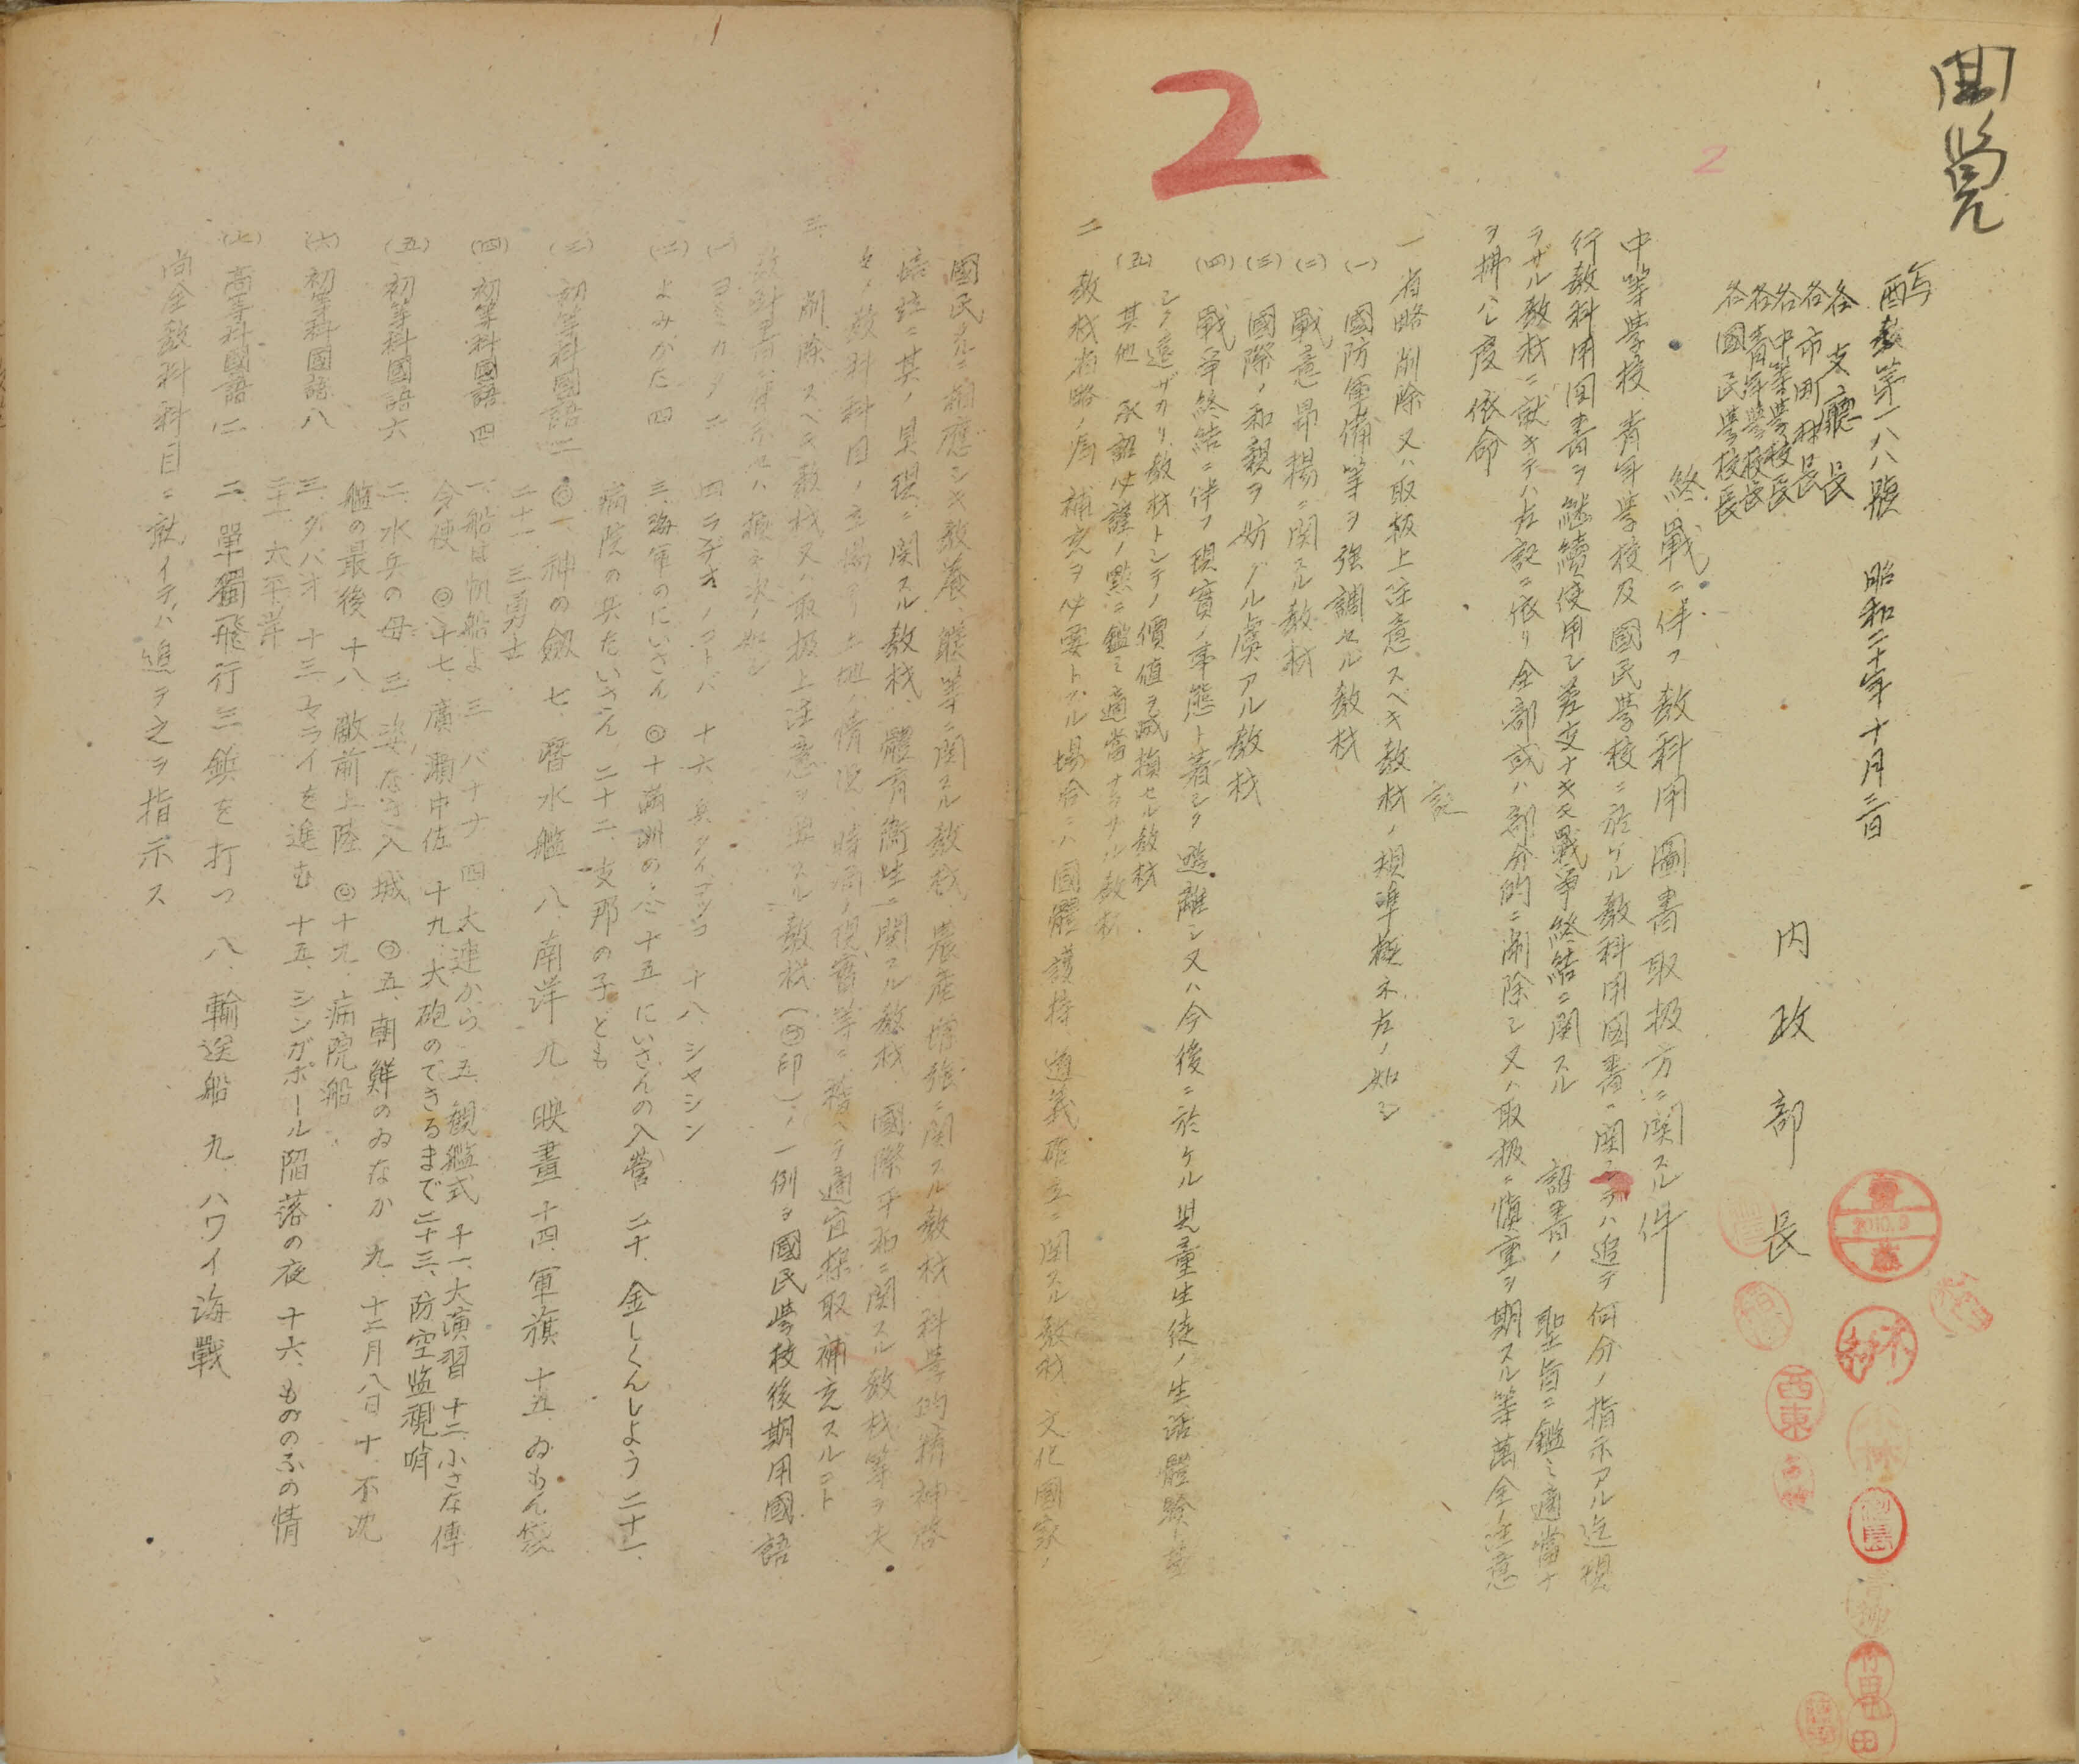 回覧
2
2
酪教第一八八号 昭和二十年十月三日
内政部長
各支廳長
各市町村長
各中等学校長
各青年学校長
各國民学校長
終戰ニ伴フ教科用圖書取扱方ニ関スル件
中等学校、青年学校及國民学校ニ於ケル教科用図書ニ関シテハ追テ何分ノ指示アル迄現
行教科用図書ヲ継続使用シ差支ナキモ戰争終結ニ関スル 詔書ノ 聖旨ニ鑑ミ適當ナ
ラザル教材ニ就キテハ左記ニ依リ全部或ハ部分的ニ削除シ又ハ取扱ニ慎重ヲ期スル等萬全ノ注意
ヲ拂ハレ度依命
記
一 省略削除又ハ取扱上注意スベキ教材ノ規準概ネ左ノ如シ
(一) 國防軍備等ヲ強調セル教材
(二) 戰意昂揚ニ関スル教材
(三) 國際ノ和親ヲ妨グル虞アル教材
(四) 戰争終結ニ伴フ現實ノ事態ト著シク遊離シ又ハ今後ニ於ケル児童生徒ノ生活體験ト著
シク遠ザカリ教材トシテノ價値ヲ減損セル教材
(五) 其他承詔必謹ノ點ニ鑑ミ適當ナラザル教材
二 教材省略ノ為補充ヲ必要トスル場合ニハ國體護持、道義確立ニ関スル教材、文化國家ノ
國民タルニ相應シキ教養、躾等ニ関スル教材、農産増強ニ関スル教材、科学的精神啓
培竝ニ其ノ具現ニ関スル教材、體育衛生ニ関スル教材、國際平和ニ関スル教材等ヲ夫
々ノ教科科目ノ立場ヨリ土地ノ情況、時局ノ現實等ニ稽ヘテ適宜採取補充スルコト
三、削除スベキ教材又ハ取扱上注意ヲ要スル教材(◎印)ノ一例ヲ國民学校後期用國語
教科書ニ付示セバ概ネ次ノ如シ
(一) ヨミカタ二 四ラヂオノコトバ 十六、兵タイゴッコ 十八、シャシン
(二) よみかた四 三、海軍のにいさん ◎十満洲の冬 十五、にいさんの入營 二十、金しくんしよう 二十一、
病院の兵たいさん、二十二、支那の子ども
(三) 初等科國語二 ◎一、神の劔 七、潜水艦 八、南洋 九、映畫 十四、軍旗 十五、ゐもん袋
二十一、三勇士
(四) 初等科國語四 一、船は帆船よ 三、バナナ 四、大連から 五、観艦式 十一、大演習 十二、小さな傳
令使 ◎十七、廣瀬中佐 十九、大砲のできるまで 二十三、防空監視哨
(五) 初等科國語六 二、水兵の母 三、姿なき入城 ◎五、朝鮮のゐなか 九、十二月八日 十、不沈
艦の最後 十八、敵前上陸 ◎十九、病院船
(六) 初等科國語八 三、ダバオへ 十三、マライを進む 十五、シンガポール陥落の夜 十六、もののふの情
二十、太平洋
(七) 高等科國語二 二、單獨飛行 三、鎮を打つ 八、輸送船 九、ハワイ海戰
尚全教科科目ニ就イテハ追テ之ヲ指示ス
西東
竹田